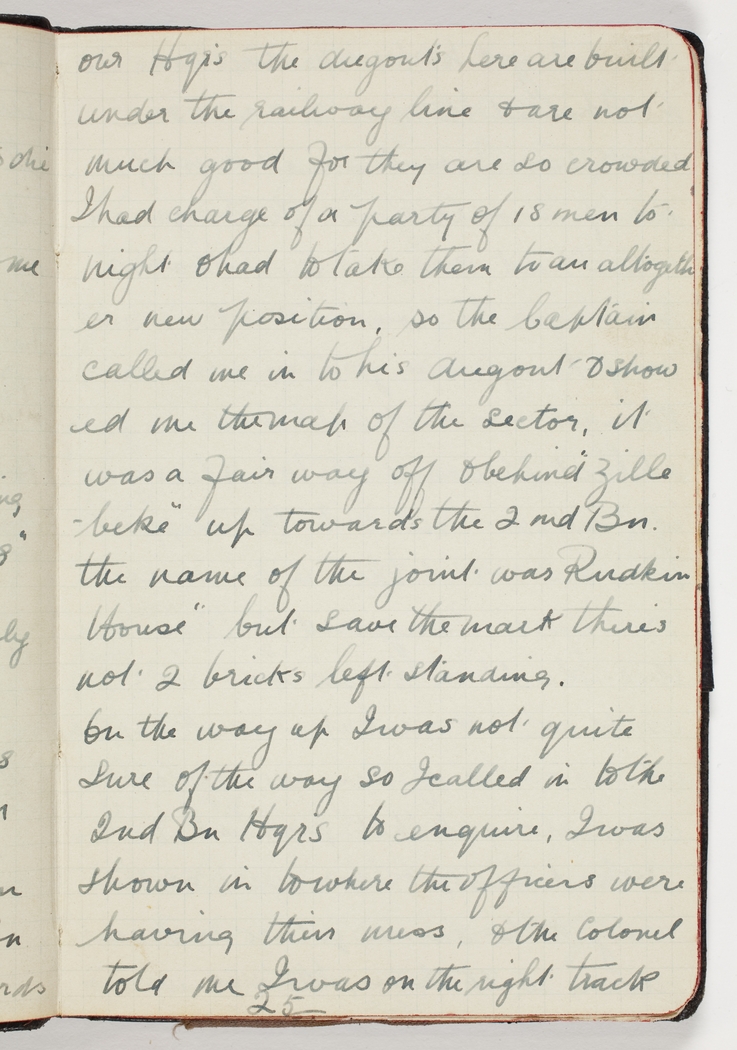 our Hqrs the dugouts here are built
under the railway line & are not
much good for they are so crowded
I had charge of a party of 18 men to
night & had to take them to an altogeth
er new position, so the Captain
called me in to his dugout & show
ed me the map of the sector, it
was a fair way off & behind "Zille
-beke" up towards the 2nd Bn.
the name of the joint was Rudkin
House" but save the mark there's
not 2 bricks left standing.
On the way up I was not quite
sure of the way so I called in to the
2nd Bn Hqrs to enquire, I was
shown in to where the officers were
having their mess, & the Colonel
told me I was on the right track
25